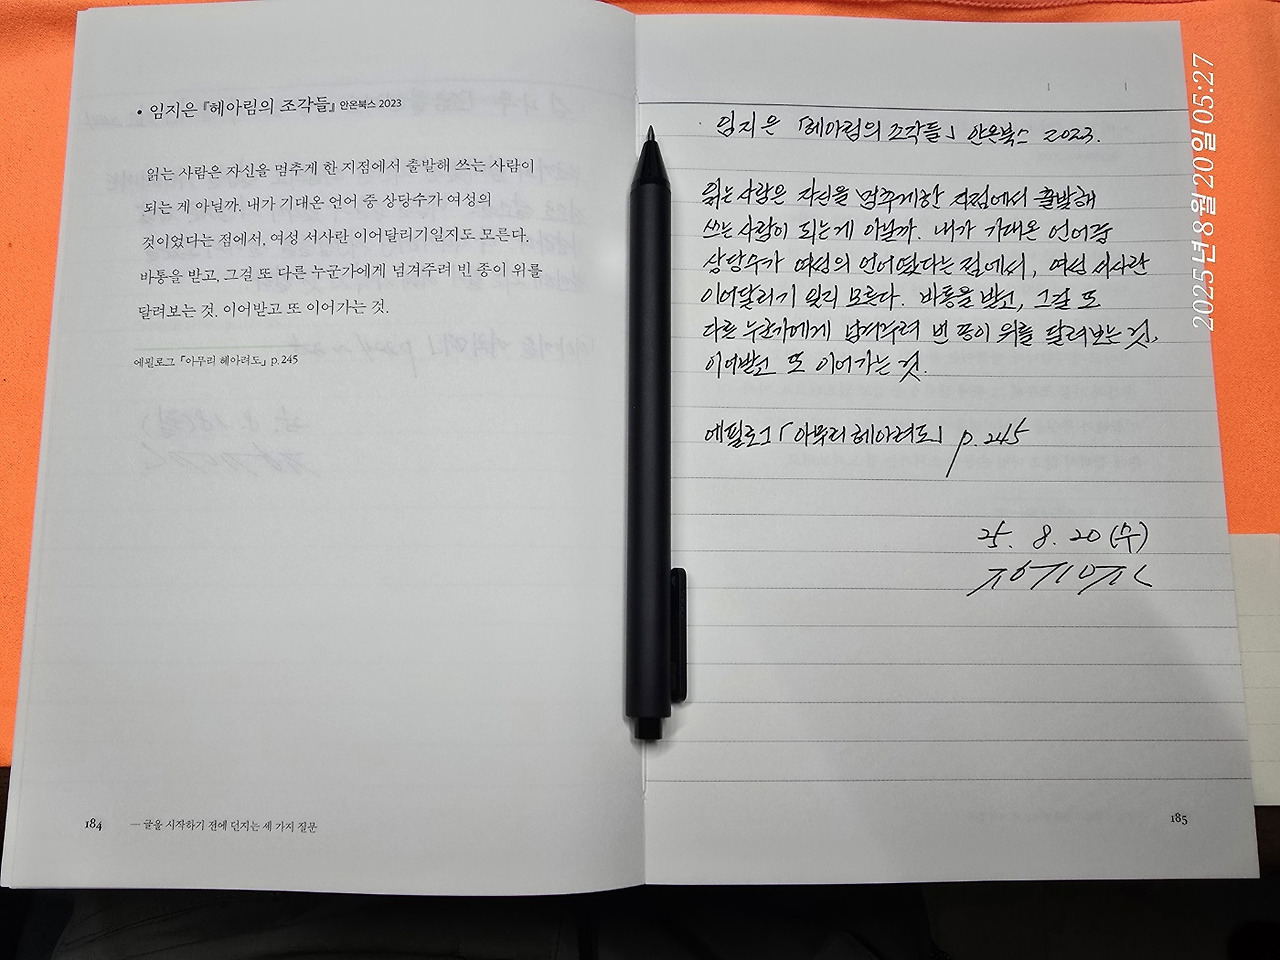 • 임지은 『헤아림의 조각들』 안온북스 2023
읽는 사람은 자신을 멈추게 한 지점에서 출발해 쓰는 사람이
되는 게 아닐까. 내가 기대온 언어 중 상당수가 여성의
것이었다는 점에서, 여성 서사란 이어달리기일지도 모른다.
바통을 받고, 그걸 또 다른 누군가에게 넘겨주려 빈 종이 위를
달려보는 것. 이어받고 또 이어가는 것.
에필로그 「아무리 헤아려도」 p.245
184 — 글을 시작하기 전에 던지는 세 가지 질문
· 임지은 「헤아림의 조각들」 안온북스 2023.
읽는 사람은 자신을 멈추게한 지점에서 출발해
쓰는 사람이 되는게 아닐까. 내가 기대온 언어중
상당수가 여성의 언어였다는 점에서, 여성 서사란
이어달리기 일지 모른다. 바통을 받고, 그걸 또
다른 누군가에게 넘겨주려 빈 종이 위를 달려보는 것,
이어받고 또 이어가는 것.
에필로그 「아무리 헤아려도」 p.245
25. 8. 20 (수)
185
2025년 8월 20일 05:27